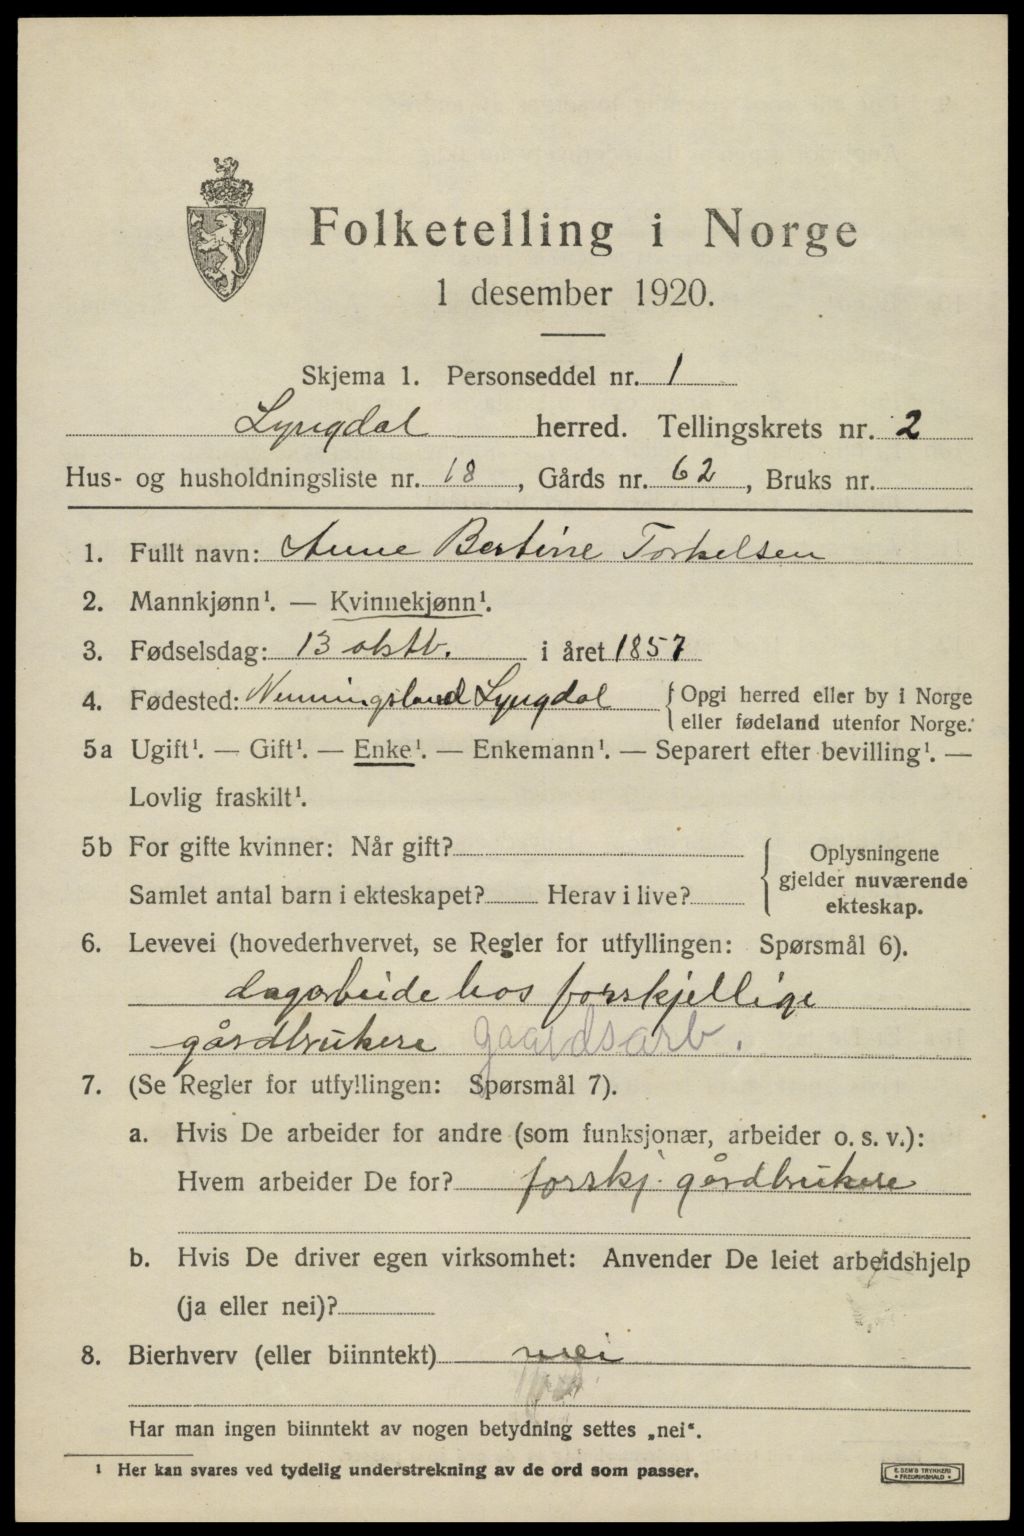 Folketelling i Norge
1 desember 1920.
Skjema 1. Personseddel nr. 1
Lyngdal herred. Tellingskrets nr. 2
Hus- og husholdningsliste nr. 18, Gårds nr. 62, Bruks nr.
1. Fullt navn: Anne Bertine Torkelsen
2. Mannkjønn¹. — Kvinnekjønn¹.
3. Fødselsdag: 13 oktb. i året 1857
4. Fødested: Nenningsland Lyngdal {Opgi herred eller by i Norge
eller fødeland utenfor Norge.
5a Ugift¹. — Gift¹. — Enke¹. — Enkemann¹. — Separert efter bevilling¹. —
Lovlig fraskilt¹.
5b For gifte kvinner: Når gift? { Oplysningene
gjelder nuværende
Samlet antal barn i ekteskapet? Herav i live? ekteskap.
6. Levevei (hovederhvervet, se Regler for utfyllingen: Spørsmål 6).
dagarbeide hos forskjellige
gårdbrukere gaardsarb.
7. (Se Regler for utfyllingen: Spørsmål 7).
a. Hvis De arbeider for andre (som funksjonær, arbeider o. s. v.):
Hvem arbeider De for? forskj. gårdbrukere
b. Hvis De driver egen virksomhet: Anvender De leiet arbeidshjelp
(ja eller nei)?
8. Bierhverv (eller biinntekt) nei
Har man ingen biinntekt av nogen betydning settes „nei“.
¹ Her kan svares ved tydelig understrekning av de ord som passer.
E. SEM'S TRYKKERI
FREDRIKSHALD